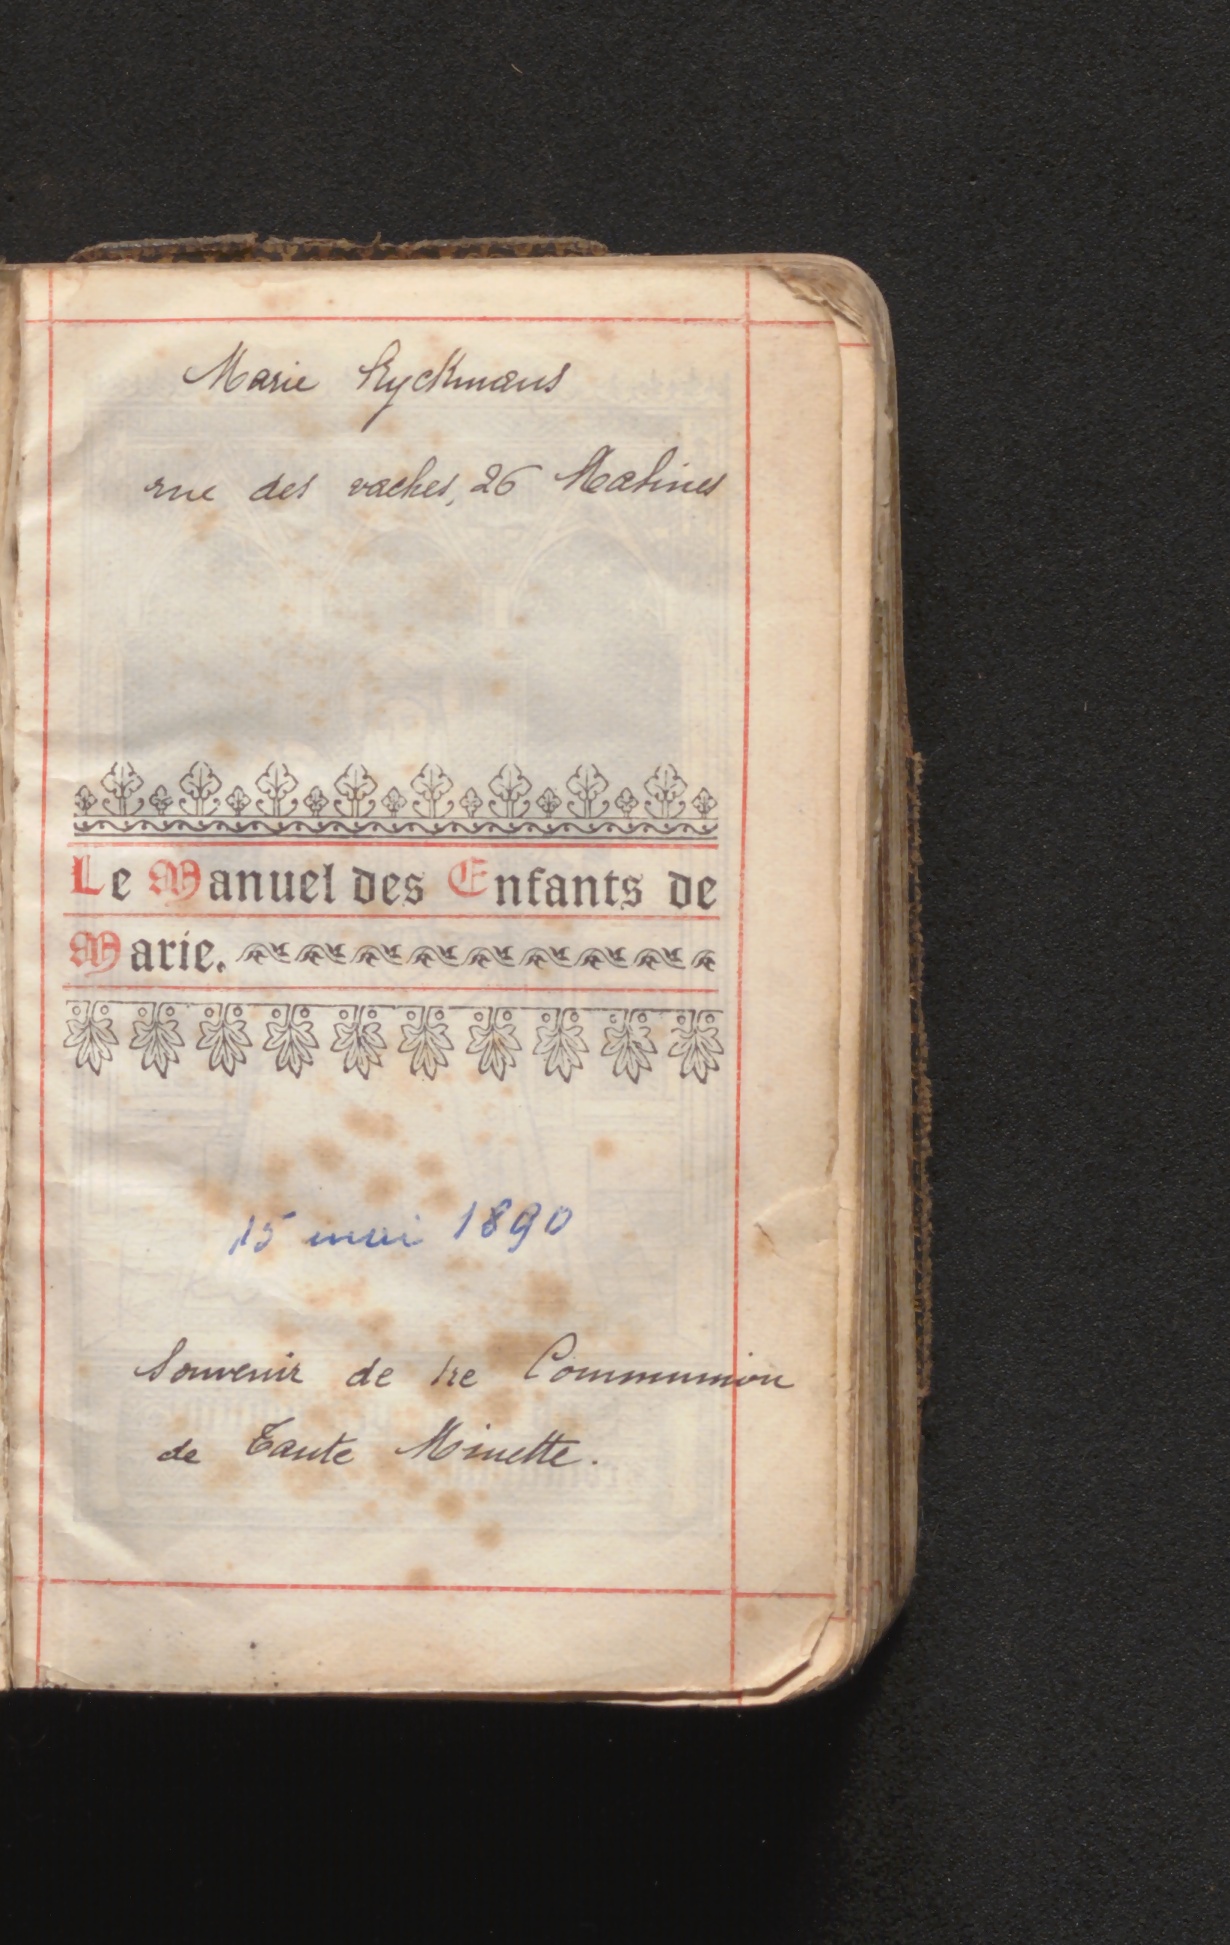 Marie Ryckmans
rue des vaches, 26 Malines
Le Manuel des Enfants de
Marie.
15 mai 1890
Souvenir de 1re Communion
de Tante Minette.